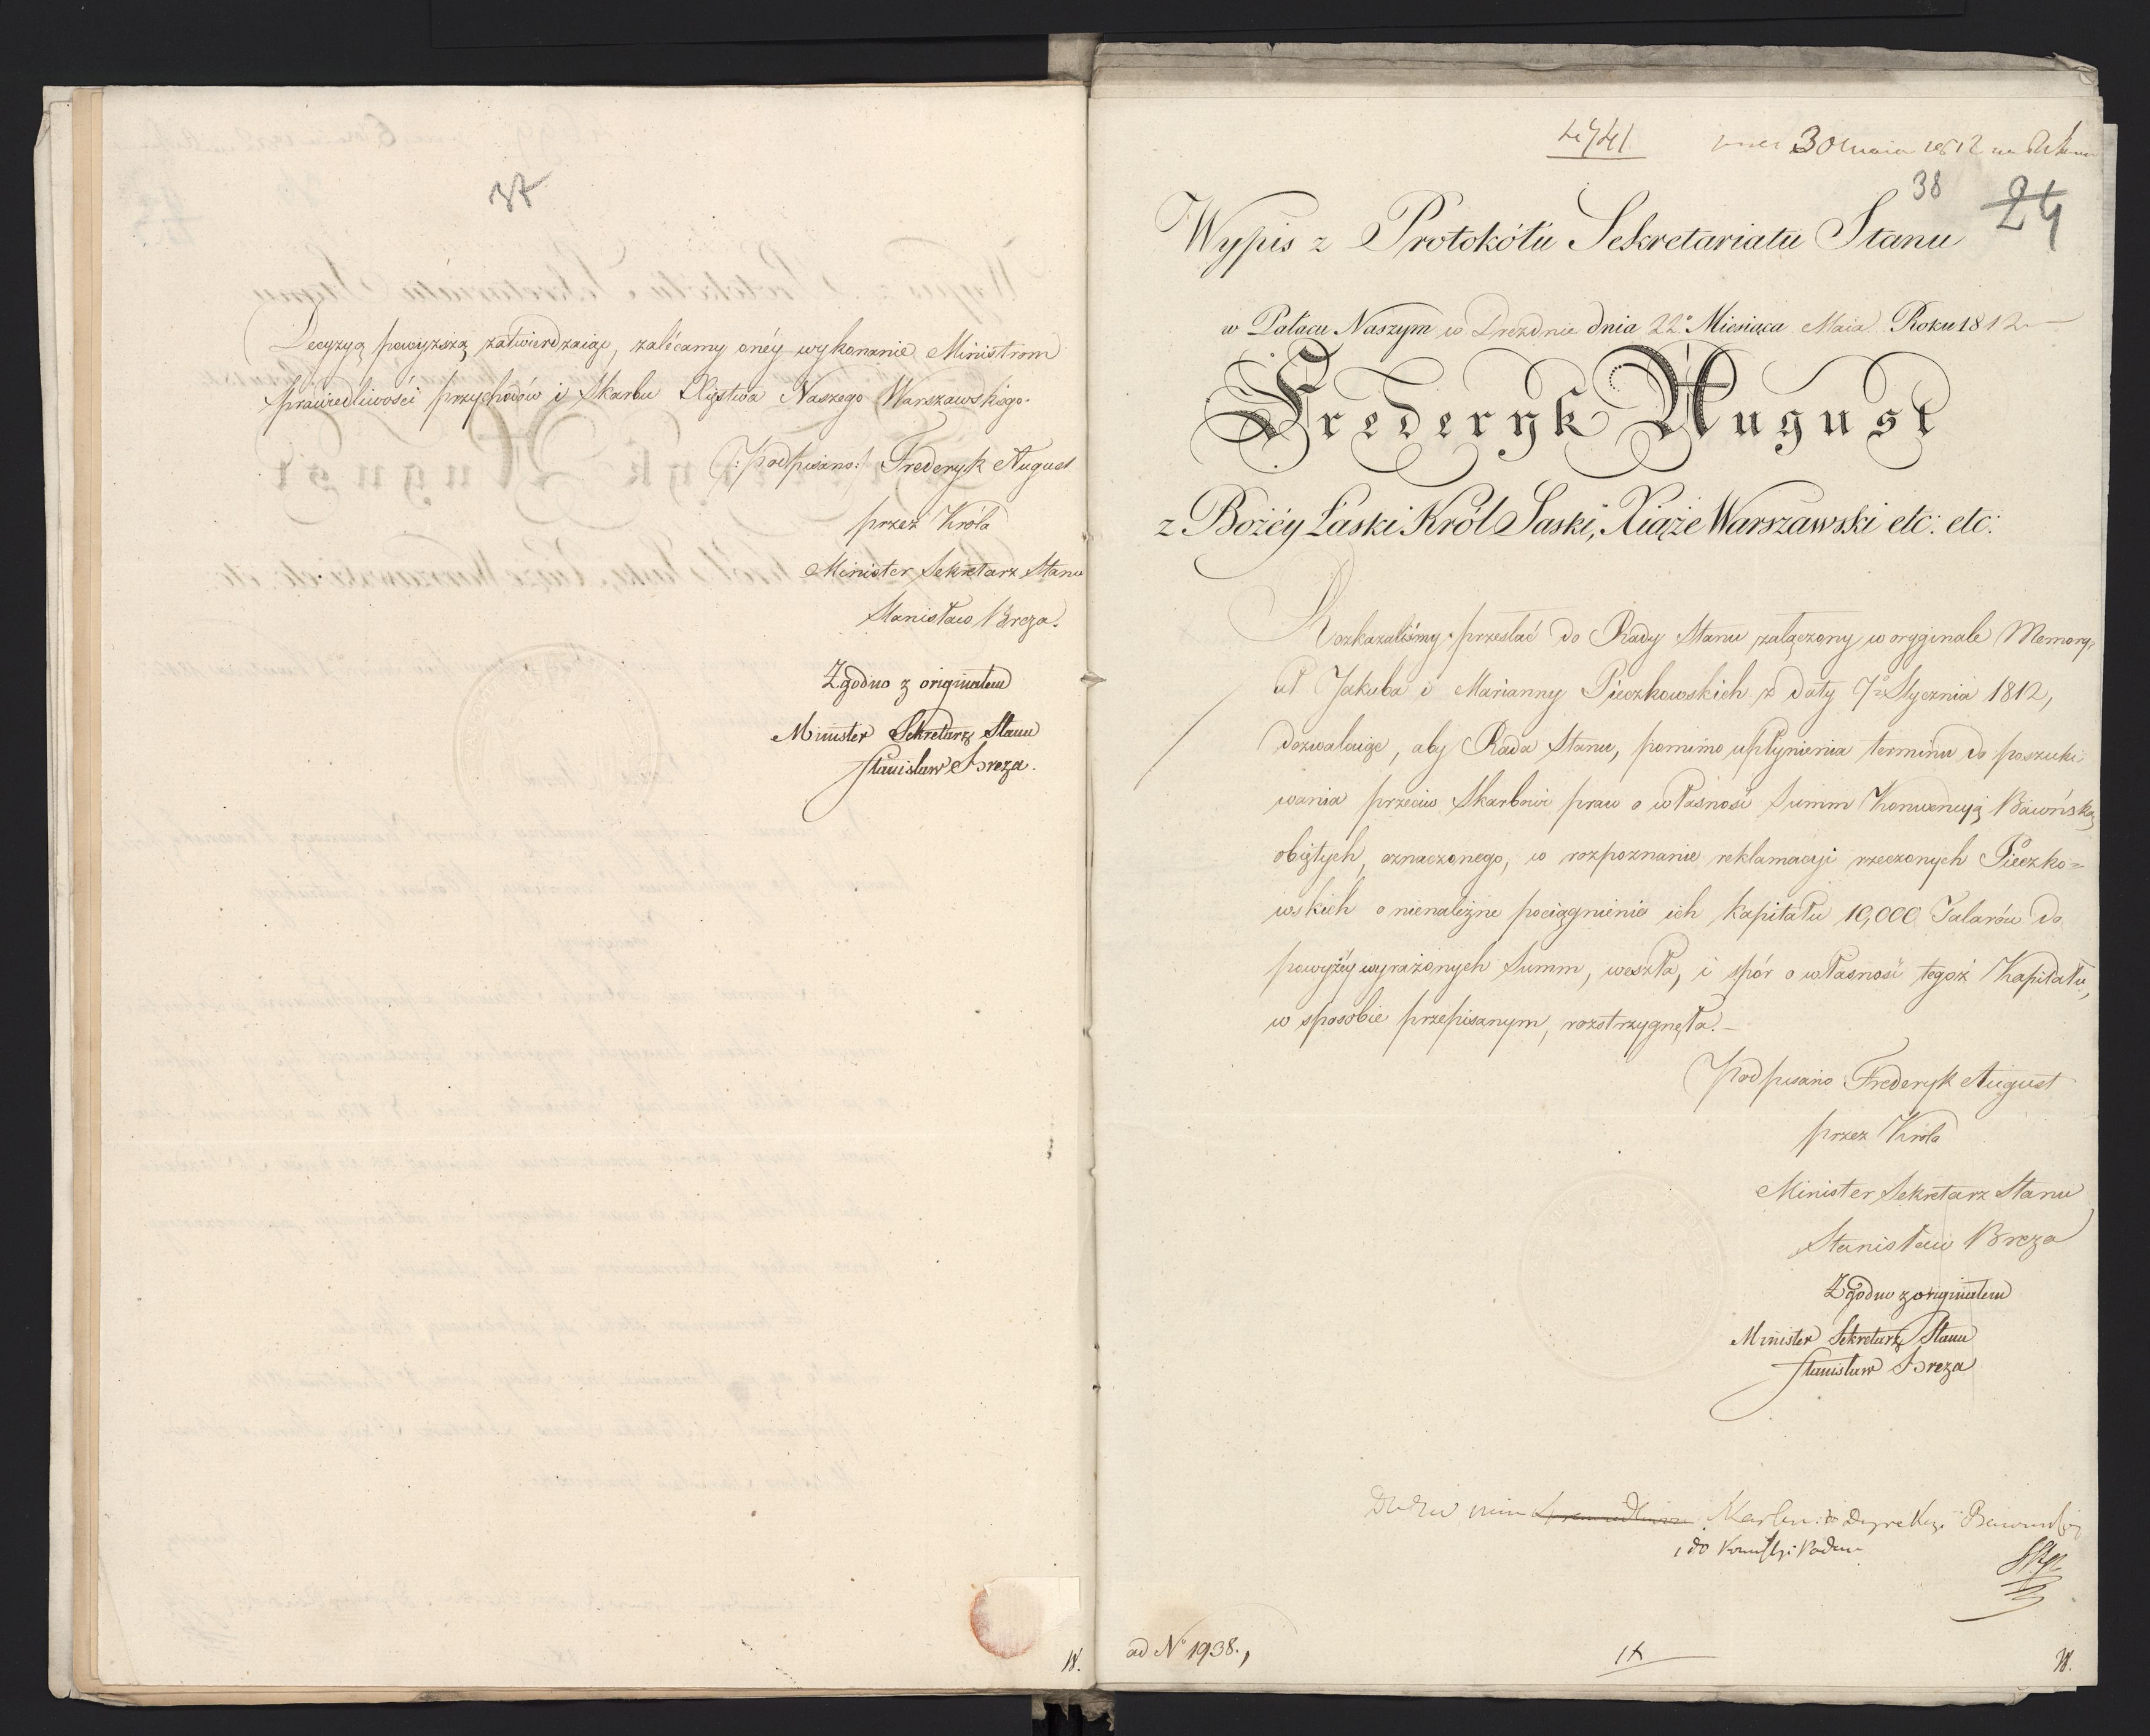 37
Decyzyą powyższą zatwierdzaiąc, zalécamy onéy wykonanie Ministrom
Sprawiedliwości przychodów i Skarbu Xięstwa Naszego Warszawskiego.
/:podpisano:/ Fryderyk August
przez Króla
Minister Sekretarz Stanu
Stanisław Breza.
Zgodno z originałem
Minister Sekretarz Stanu
Stanisław Breza.
W.
30 maia 1812
38
24
Wypis z Protokółu Sekretariatu Stanu
w Pałacu Naszym w Dreznie dnia 22° Miesiąca Maia Roku 1812
Frederyk August
z Bożéy Łaski Król Saski, Xiąże Warszawski etc: etc:
Rozkazaliśmy przesłać do Rady Stanu załączony w oryginale Memory-
ał Jakuba i Marianny Pieczkowskich z daty 7° Stycznia 1812,
dozwalaiąc, aby Rada Stanu, pomimo upłynienia terminu do poszuki-
wania przeciw Skarbowi praw o własność Summ Konwencyą Baiońską
obiętych, oznaczonego, w rozpoznanie reklamacyi rzeczonych Pieczko=
wskich o nienależne pociągnienie ich Kapitału 10,000 Talarów do
powyżéy wyrażonych Summ, weszła, i spór o własność tegoż Kapitału,
w sposobie przepisanym, rozstrzygnęła.—
Podpisano Frederyk August
przez Króla
Minister Sekretarz Stanu
Stanisław Breza
Zgodno z originałem
Minister Sekretarz Stanu
Stanisław Breza
ad N° 1938.,
W.